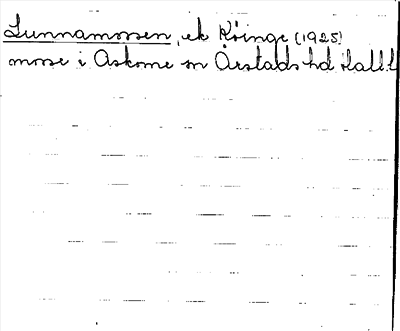 Lunnamossen, ek Köinge (1925)
mosse i Askome sn Årstads hd Hall.l